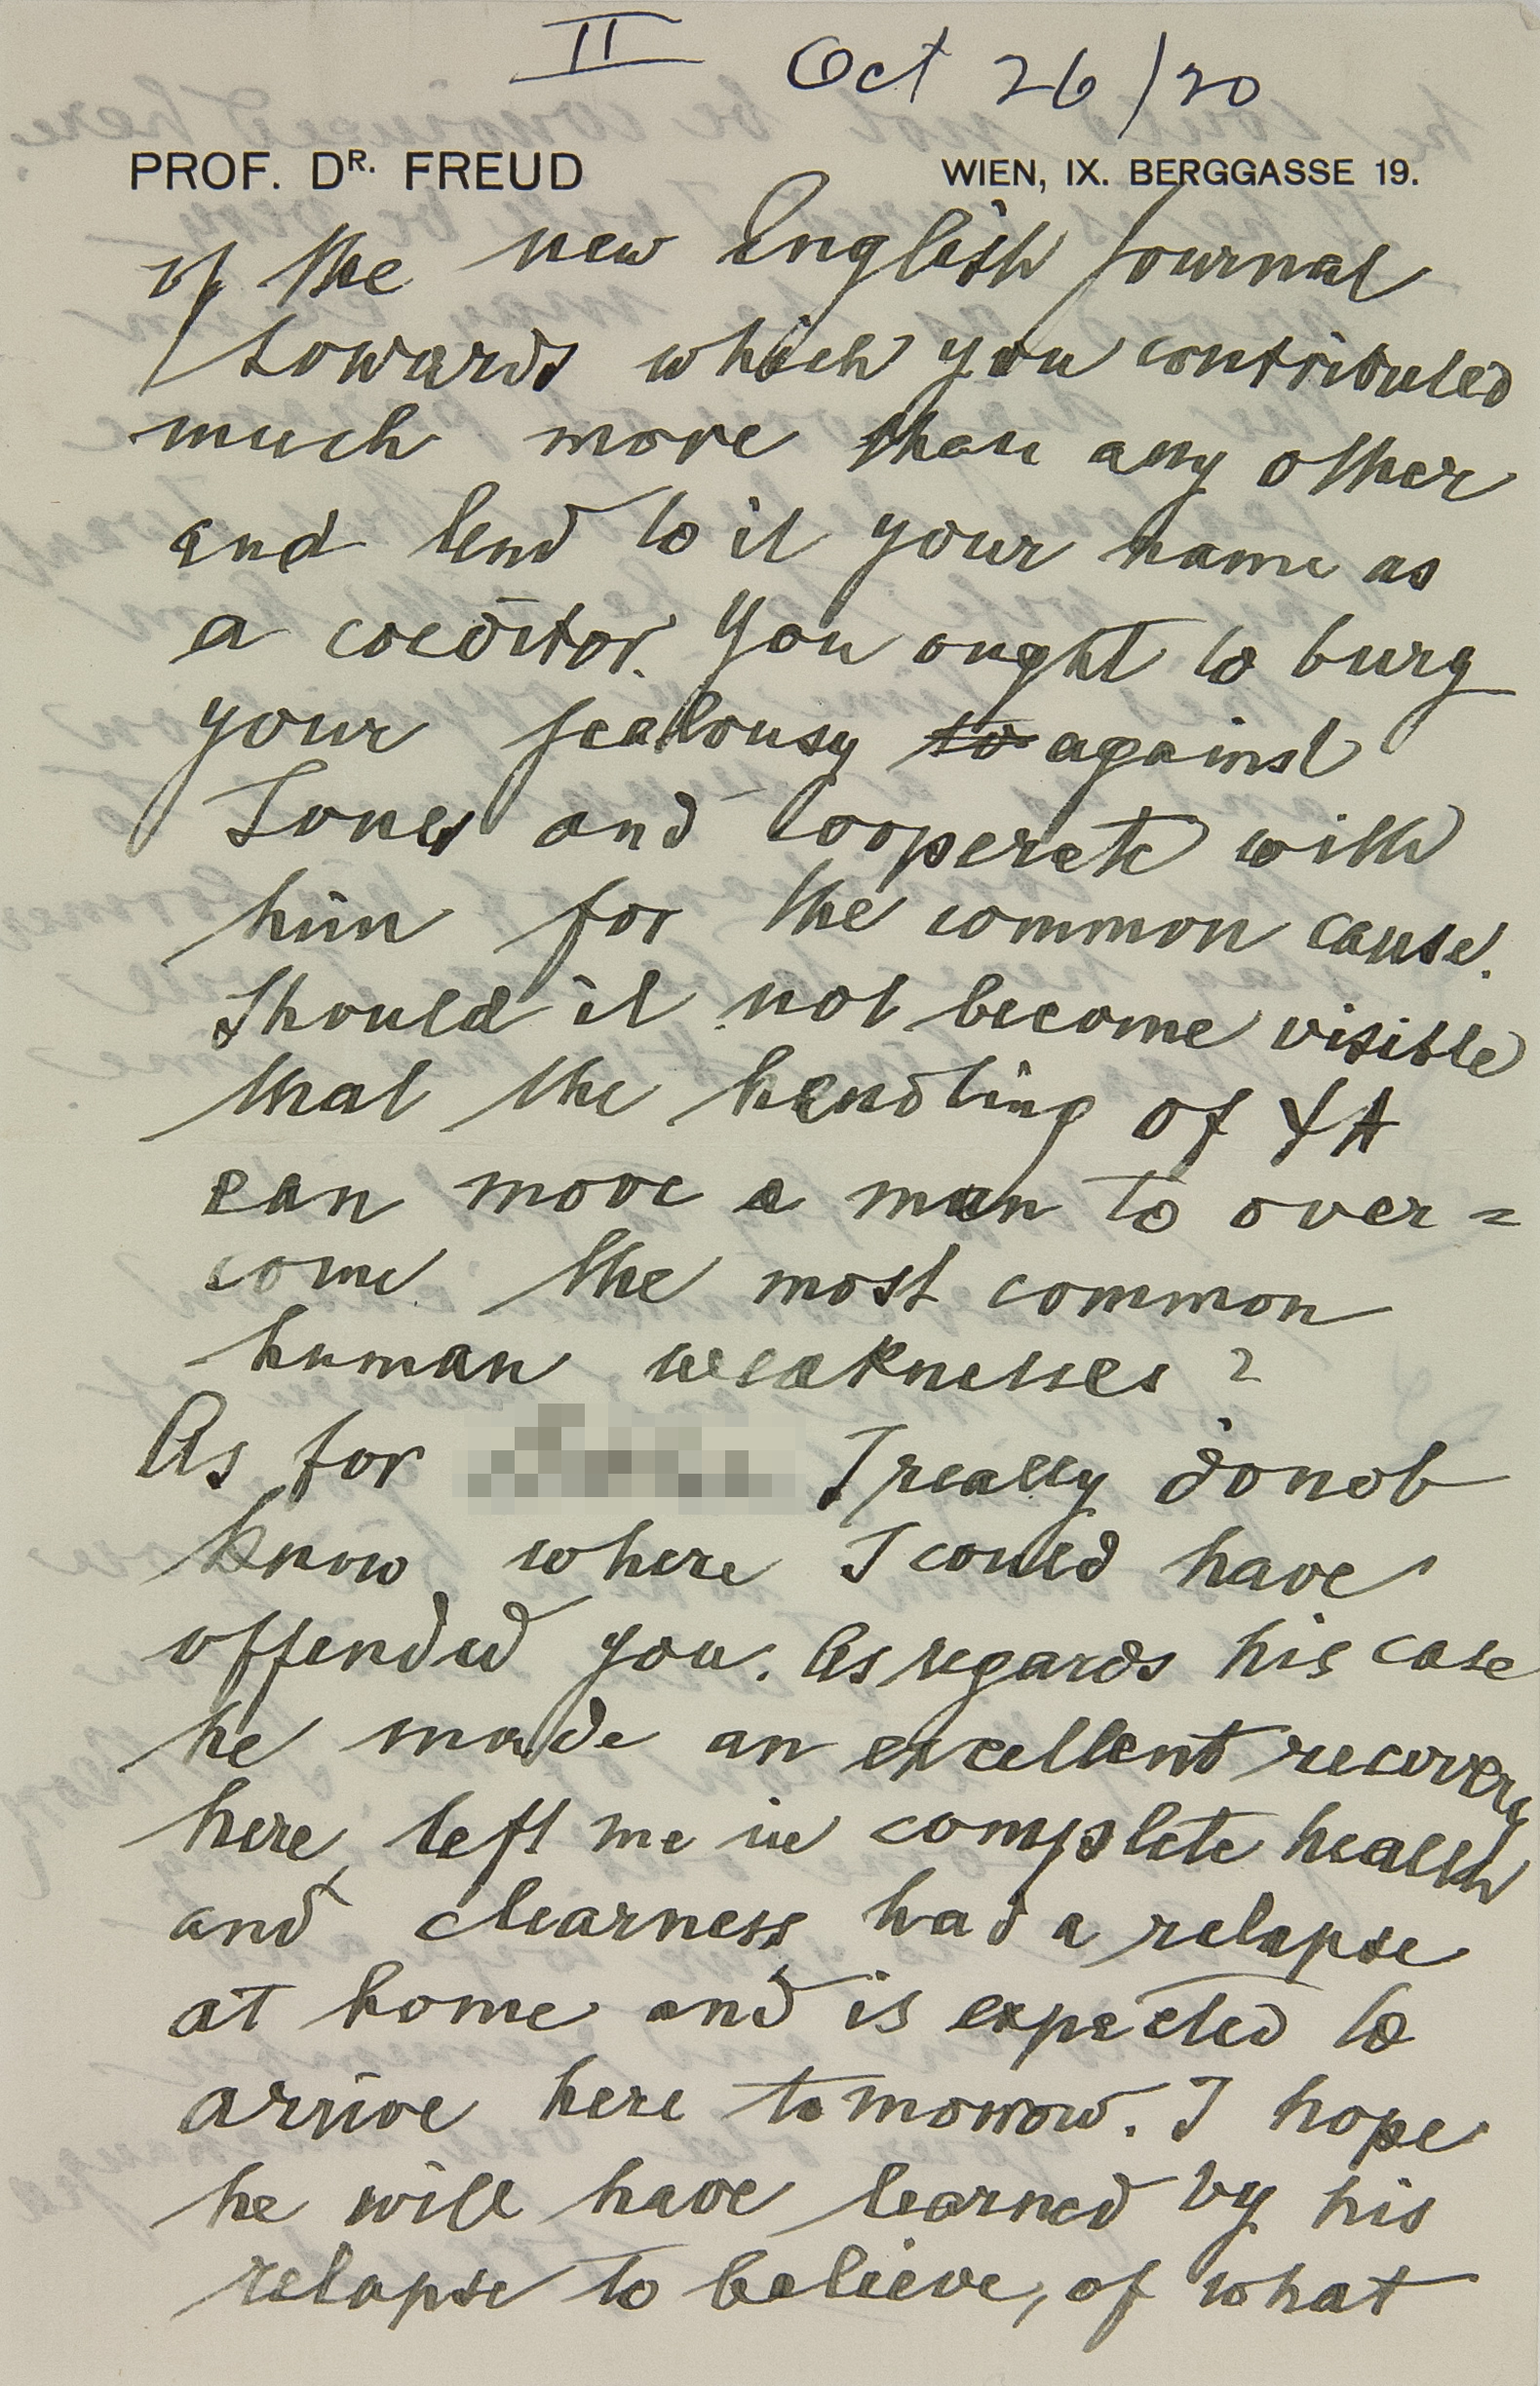 II Oct 26/20
PROF. DR. FREUD WIEN, IX. BERGGASSE 19.
of the new English Journal
towards which you contributed
much more than any other
and lend to it your name as
a coeditor. You ought to bury
your jealousy to against
Jones and cooperate with
him for the common cause.
Should it not become visible
that the handling of ΨA
can move a man to over=
come the most common
human weaknesses?
As for I really do not
know where I could have
offended you. As regards his case
he made an excellent recovery
here, left me in complete health
and clearness, had a relapse
at home and is expected to
arrive here tomorrow. I hope
he will have learned by his
relapse to believe, of what